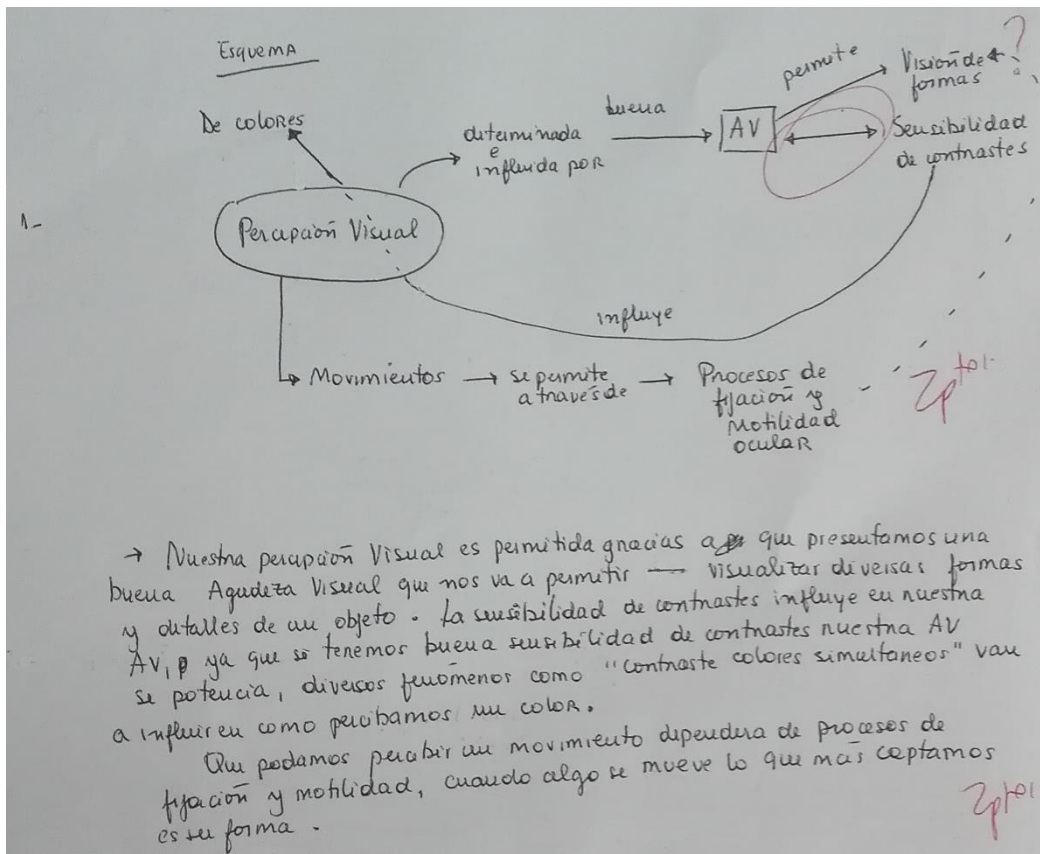 Esquema
De colores
determinada
e
influida por
buena
AV
permite
Visión de
formas
?
Sensibilidad
de contrastes
1-
Percepción Visual
influye
Movimientos → se permite
a través de → Procesos de
fijación y
Motilidad
ocular
2 ptos.
→ Nuestra percepción Visual es permitida gracias a que presentamos una
buena Agudeza Visual que nos va a permitir — visualizar diversas formas
y detalles de un objeto. La sensibilidad de contrastes influye en nuestra
AV, ya que si tenemos buena sensibilidad de contrastes nuestra AV
se potencia, diversos fenómenos como "contraste colores simultaneos" van
a influir en como percibamos un color.
Que podamos percibir un movimiento dependera de procesos de
fijación y motilidad, cuando algo se mueve lo que más captamos
es su forma.
2 ptos